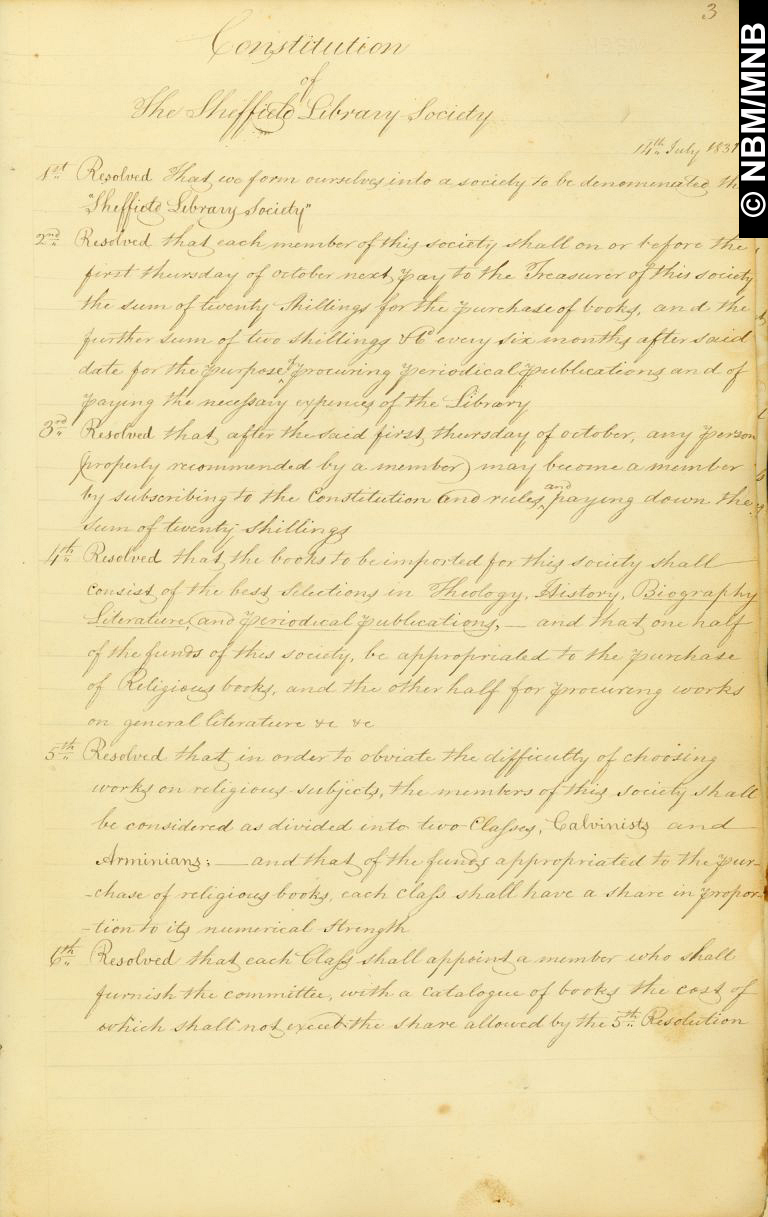 3
© NBM/MNB
Constitution
of
The Sheffield Library Society
14th July 1831
1st Resolved That we form ourselves into a society to be denomenated th
"Sheffield Library Society"
2nd Resolved that each member of this society shall on or before the
first thursday of october next, pay to the Treasurer of this society
the sum of twenty shillings for the purchase of books, and the
further sum of two shillings &c every six months after said
date for the purpose of procuring periodical publications and of
paying the necessary expences of the Library
3rd Resolved that after the said first thursday of october, any person
(properly recommended by a member) may become a member
by subscribing to the Constitution and rules, and paying down the
sum of twenty shillings
4th Resolved that the books to be imported for this society shall
consist of the best selections in Theology, History, Biography
Literature, and periodical publications, — and that one half
of the funds of this society, be appropriated to the purchase
of Religious books, and the other half for procuring works
on general literature &c &c
5th Resolved that in order to obviate the difficulty of choosing
works on religious subjects, the members of this society shall
be considered as divided into two Classes, Calvinists and
Arminians; — and that of the funds appropriated to the pur-
-chase of religious books, each class shall have a share in propor-
-tion to its numerical strength
6th Resolved that each Class shall appoint a member who shall
furnish the committee, with a catalogue of books the cost of
which shall not exceed the share allowed by the 5th Resolution